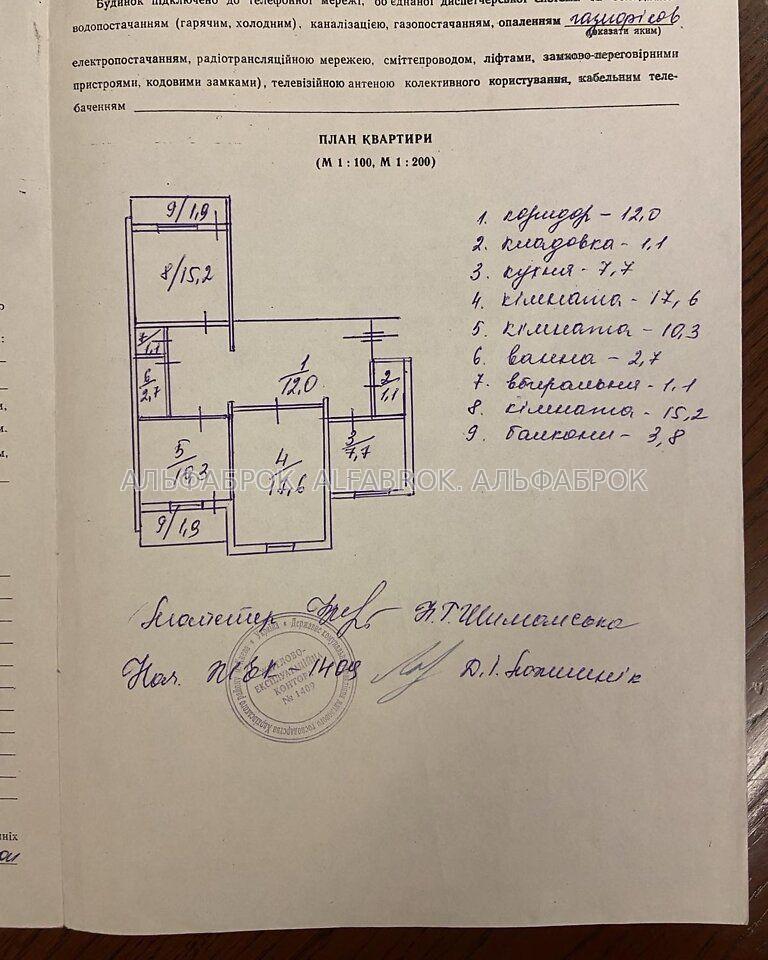 Будинок підключено до телефонної мережі, об'єднаної диспетчерської
водопостачанням (гарячим, холодним), каналізацією, газопостачанням, опаленням
(вказати яким)
електропостачанням, радіотрансляційною мережею, сміттєпроводом, ліфтами, замково-переговірними
пристроями, кодовими замками), телевізійною антеною колективного користування, кабельним теле-
баченням
ПЛАН КВАРТИРИ
(М 1 : 100, М 1 : 200)
9/1,9
8/15,2
7/1,1
6/2,7
1/12,0
2/1,1
3/7,7
5/10,3
4/17,6
9/1,9
1. коридор – 12,0
2. кладовка - 1,1
3. кухня - 7,7
4. кімната - 17,6
5. кімната - 10,3
6. ванна - 2,7
7. вбиральня - 1,1
8. кімната - 15,2
9. балкони - 3,8
АЛЬФАБРОК. ALFABROK. АЛЬФАБРОК
Н.Г. Шиманська
Нач. ЖЕК - 1409
Д.І.
ЖИТЛОВО-
ЕКСПЛУАТАЦІЙНА
КОНТОРА
№ 1409
ніх